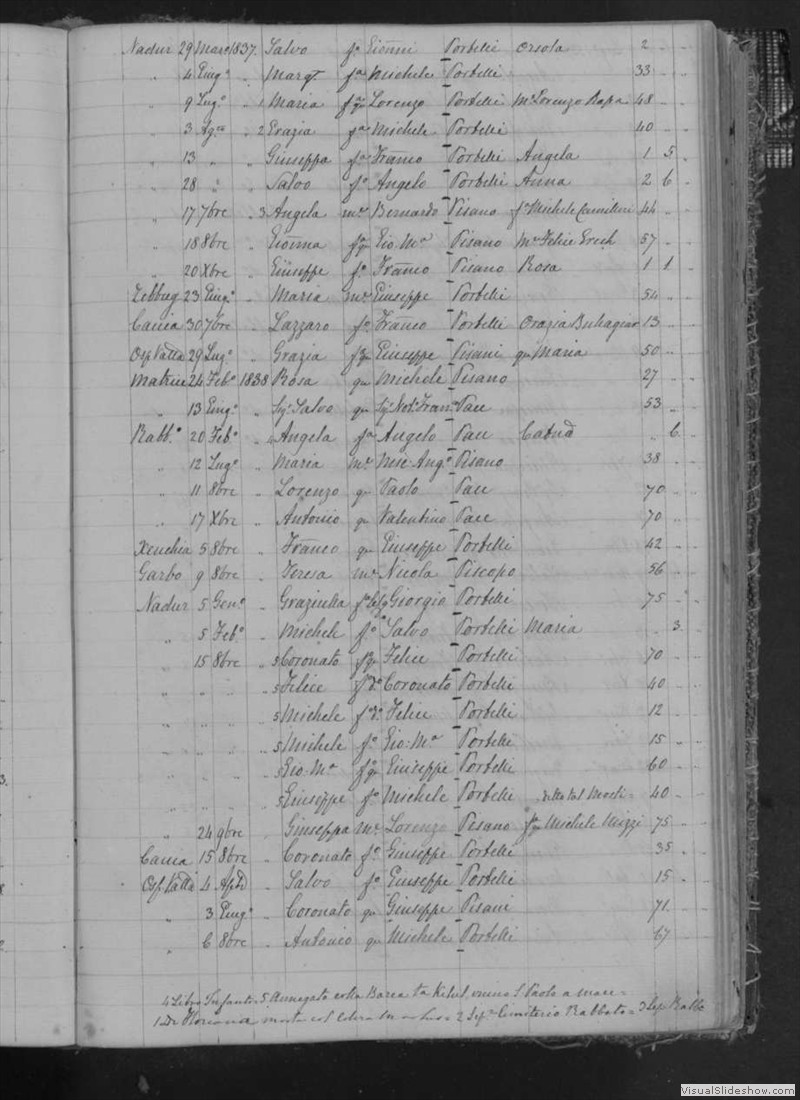 Nadur 29 Maro 1837. Salvo fo Gionni Portelli Orsola 2
" 4 Giugo " Margt fa Michele Portelli 33
" 9 Lugo " 1 Maria fa qu Lorenzo Portelli Me Lorenzo Rapa 48
" 3 Agto " 2 Grazia fa Michele Portelli 40
" 13 " " Giuseppa fa Franco Portelli Angela 1 5
" 28 " " Salvo fo Angelo Portelli Anna 2 6
" 17 7bre " 3 Angela me Bernardo Pisano fa Michele Camilleri 44
" 18 8bre " fa qu Gio Ma Pisano Me Felice Grech 57
" 20 Xbre " Giuseppe fo Franco Pisano Rosa 1 1
Zebbug 23 Giugo " Maria me Giuseppe Portelli 54
Caccia 30 7bre " Lazzaro fo Franco Portelli Orazia Buhagiar 13
Osp Vatta 29 Lugo " Grazia fa qu Giuseppe Pisani qu Maria 50
Matrice 24 Febo 1838 Rosa qu Michele Pisano 27
" 13 Giugo " Sigr Salvo qu Sigr Not. Frano Pace 53
Rabbo 20 Febo " 4 Angela fa Angelo Pace Catna " 6
" 12 Lugo " Maria me Mic Ango Pisano 38
" 11 8bre " Lorenzo qu Paolo Pace 70
" 17 Xbre " Antonio qu Valentino Pace 70
Xeuchia 5 8bre " Franco qu Giuseppe Portelli 42
Garbo 9 8bre " Teresa me Nicola Piscopo 56
Nadur 5 Geno " Graziulla Giorgio Portelli 75
" 5 Febo " Michele fo Salvo Portelli Maria " 3
" 15 8bre " 5 Coronato fo qu Felice Portelli 70
" " " " 5 Felice fo do Coronato Portelli 40
" " " " 5 Michele fo do Felice Portelli 12
" " " " 5 Michele fo Gio: Ma Portelli 15
" " " " 5 Gio: Ma fo qu Giuseppe Portelli 60
" " " " 5 Giuseppe fo Michele Portelli detto tal 40
" 24 9bre " Giuseppa me Lorenzo Pisano fa qu Michele Mizzi 75
Caccia 15 8bre " Coronato fo Giuseppe Portelli 35
Osp. Vatta 4 Aple " Salvo fo Giuseppe Portelli 15
" 3 Giugo " Coronato qu Giuseppe Pisani 71
" 6 8bre " Antonio qu Michele Portelli 67
4 Libro Infanti = 5 Annegato colla Barca ta vicino S. Paolo a mare =
1 Di Floriana morta col = 2 Sepo Cimiterio Rabbato = 3 Sep Rabbo
VisualSlideshow.com